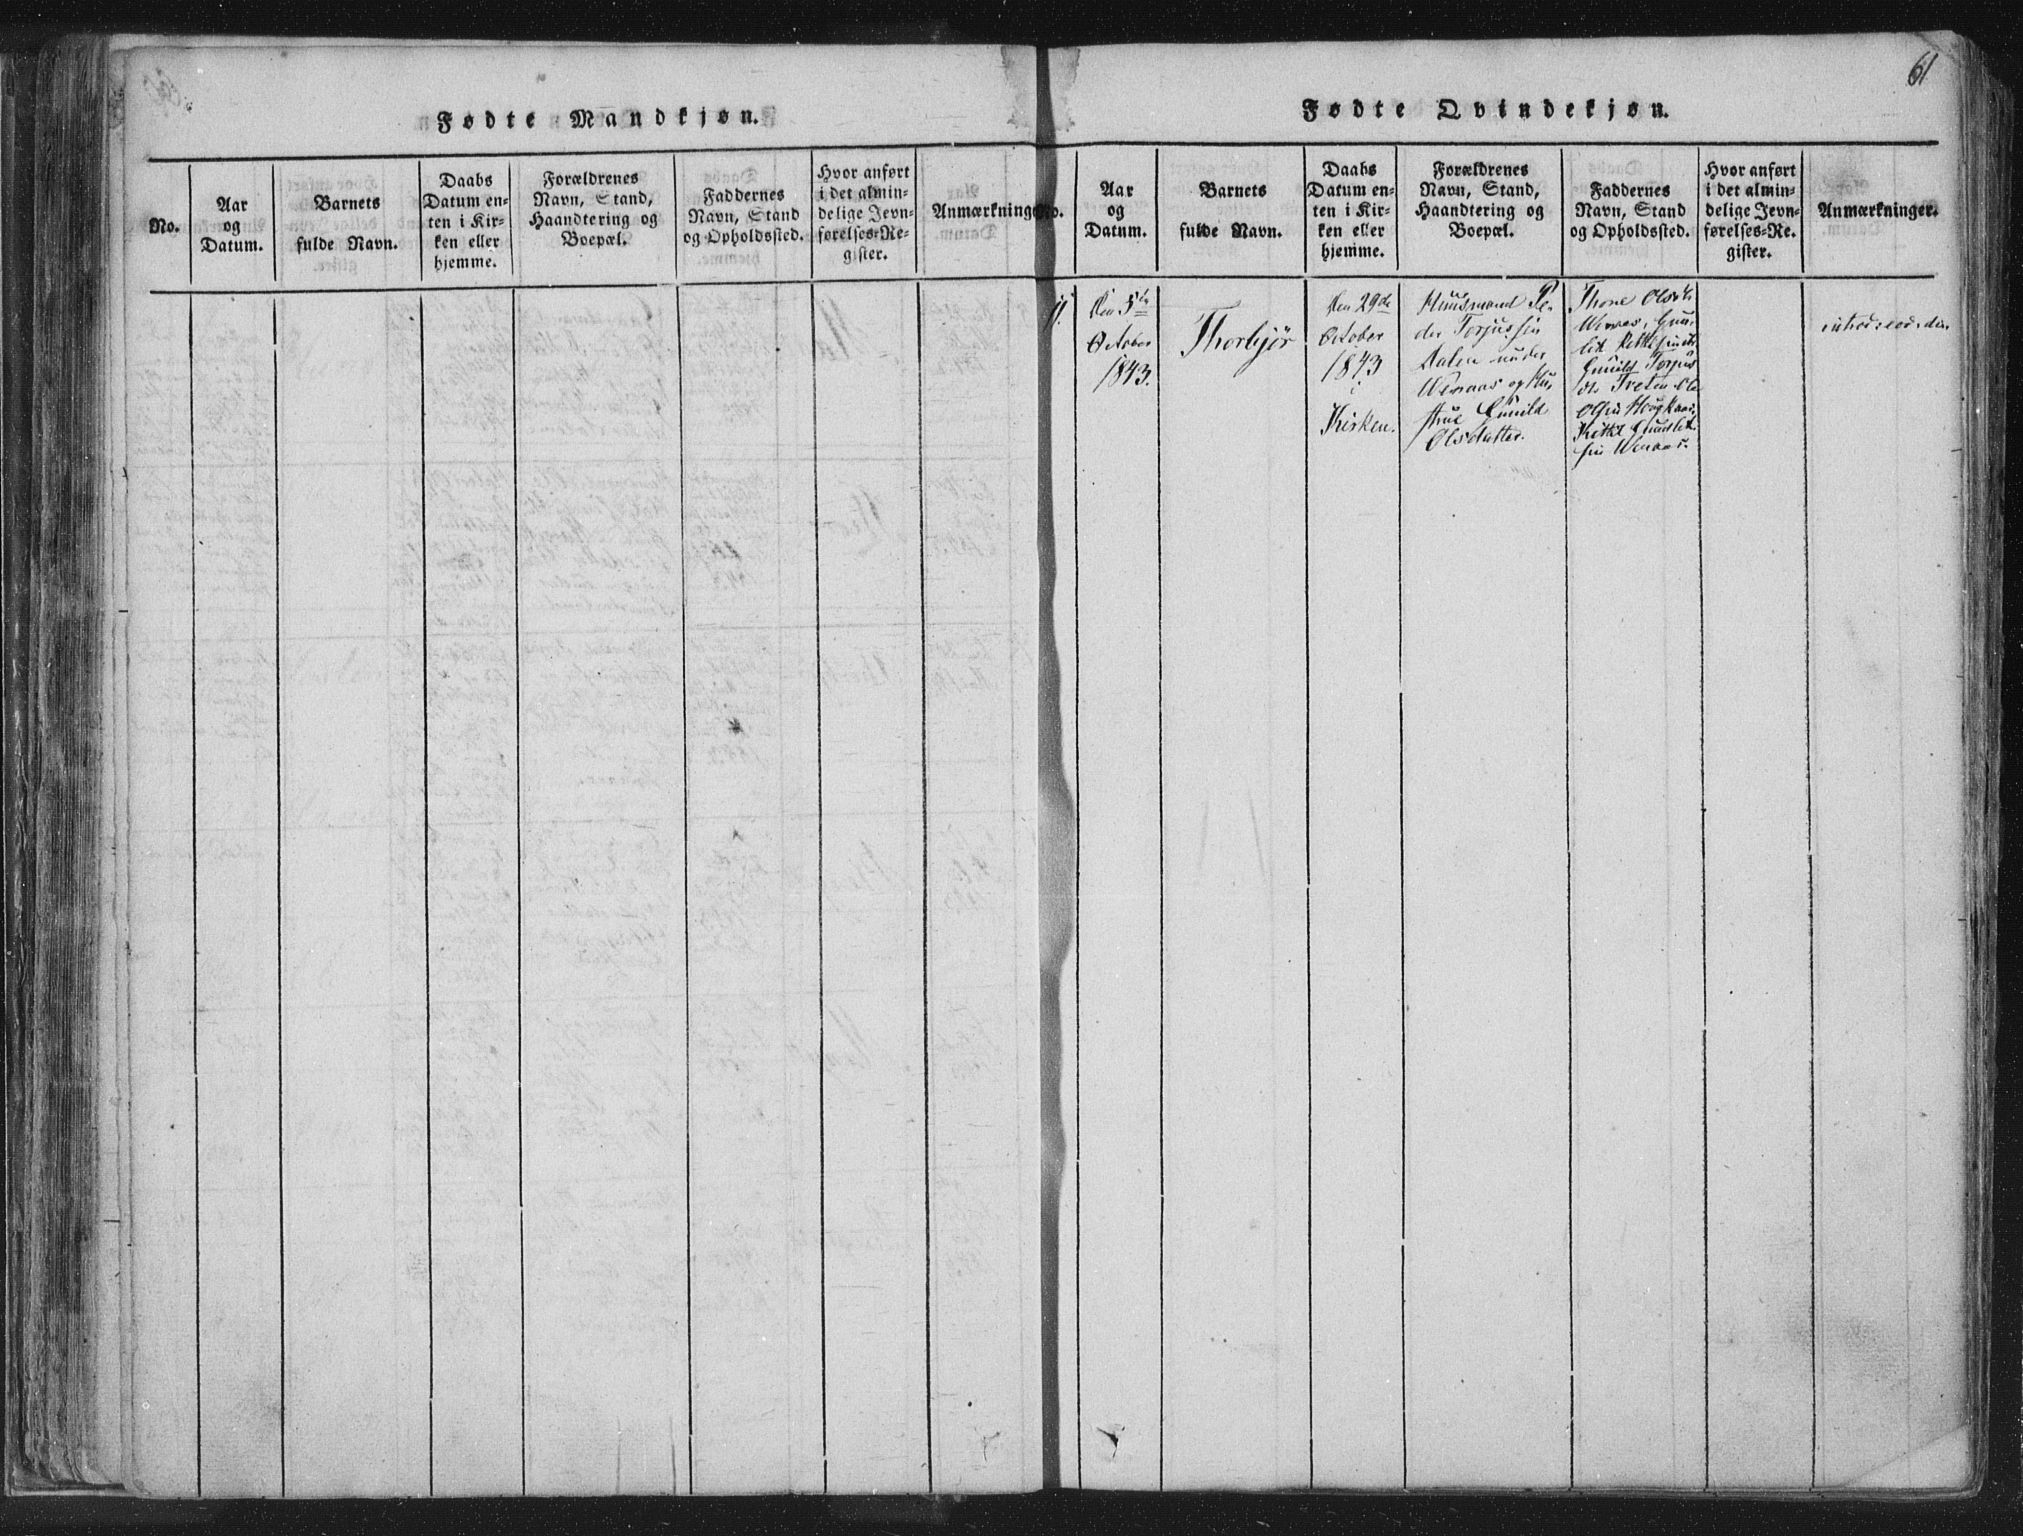 61
Fødte Mandkjøn.
No.
Aar
og
Datum.
Barnets
fulde Navn.
Daabs
Datum en-
ten i Kir-
ken eller
hjemme.
Forældrenes
Navn, Stand,
Haandtering og
Boepæl.
Faddernes
Navn, Stand
og Opholdssted.
Hvor anført
i det almin-
delige Jevn-
førelses-Re-
gister.
Anmærkninger
Fødte Qvindekjøn.
No.
Aar
og
Datum.
Barnets
fulde Navn.
Daabs
Datum en-
ten i Kir-
ken eller
hjemme.
Forældrenes
Navn, Stand,
Haandtering og
Boepæl.
Faddernes
Navn, Stand
og Opholdssted.
Hvor anført
i det almin-
delige Jevn-
førelses-Re-
gister.
Anmærkninger.
11.
Den 5te
October
1843.
Thorbjør
Den 29de
October
1843
i
Kirken.
Huusmand Pe-
der Torjussen
Aalen under
Wenaas og Hu-
strue Gunild
Olsdatter.
Thone Olsdt.
Wenaas, Gun-
lik
Gunild Torjus
dt. Treten Ole
Olsen
Kittil Gunlik-
sen Wenaas.